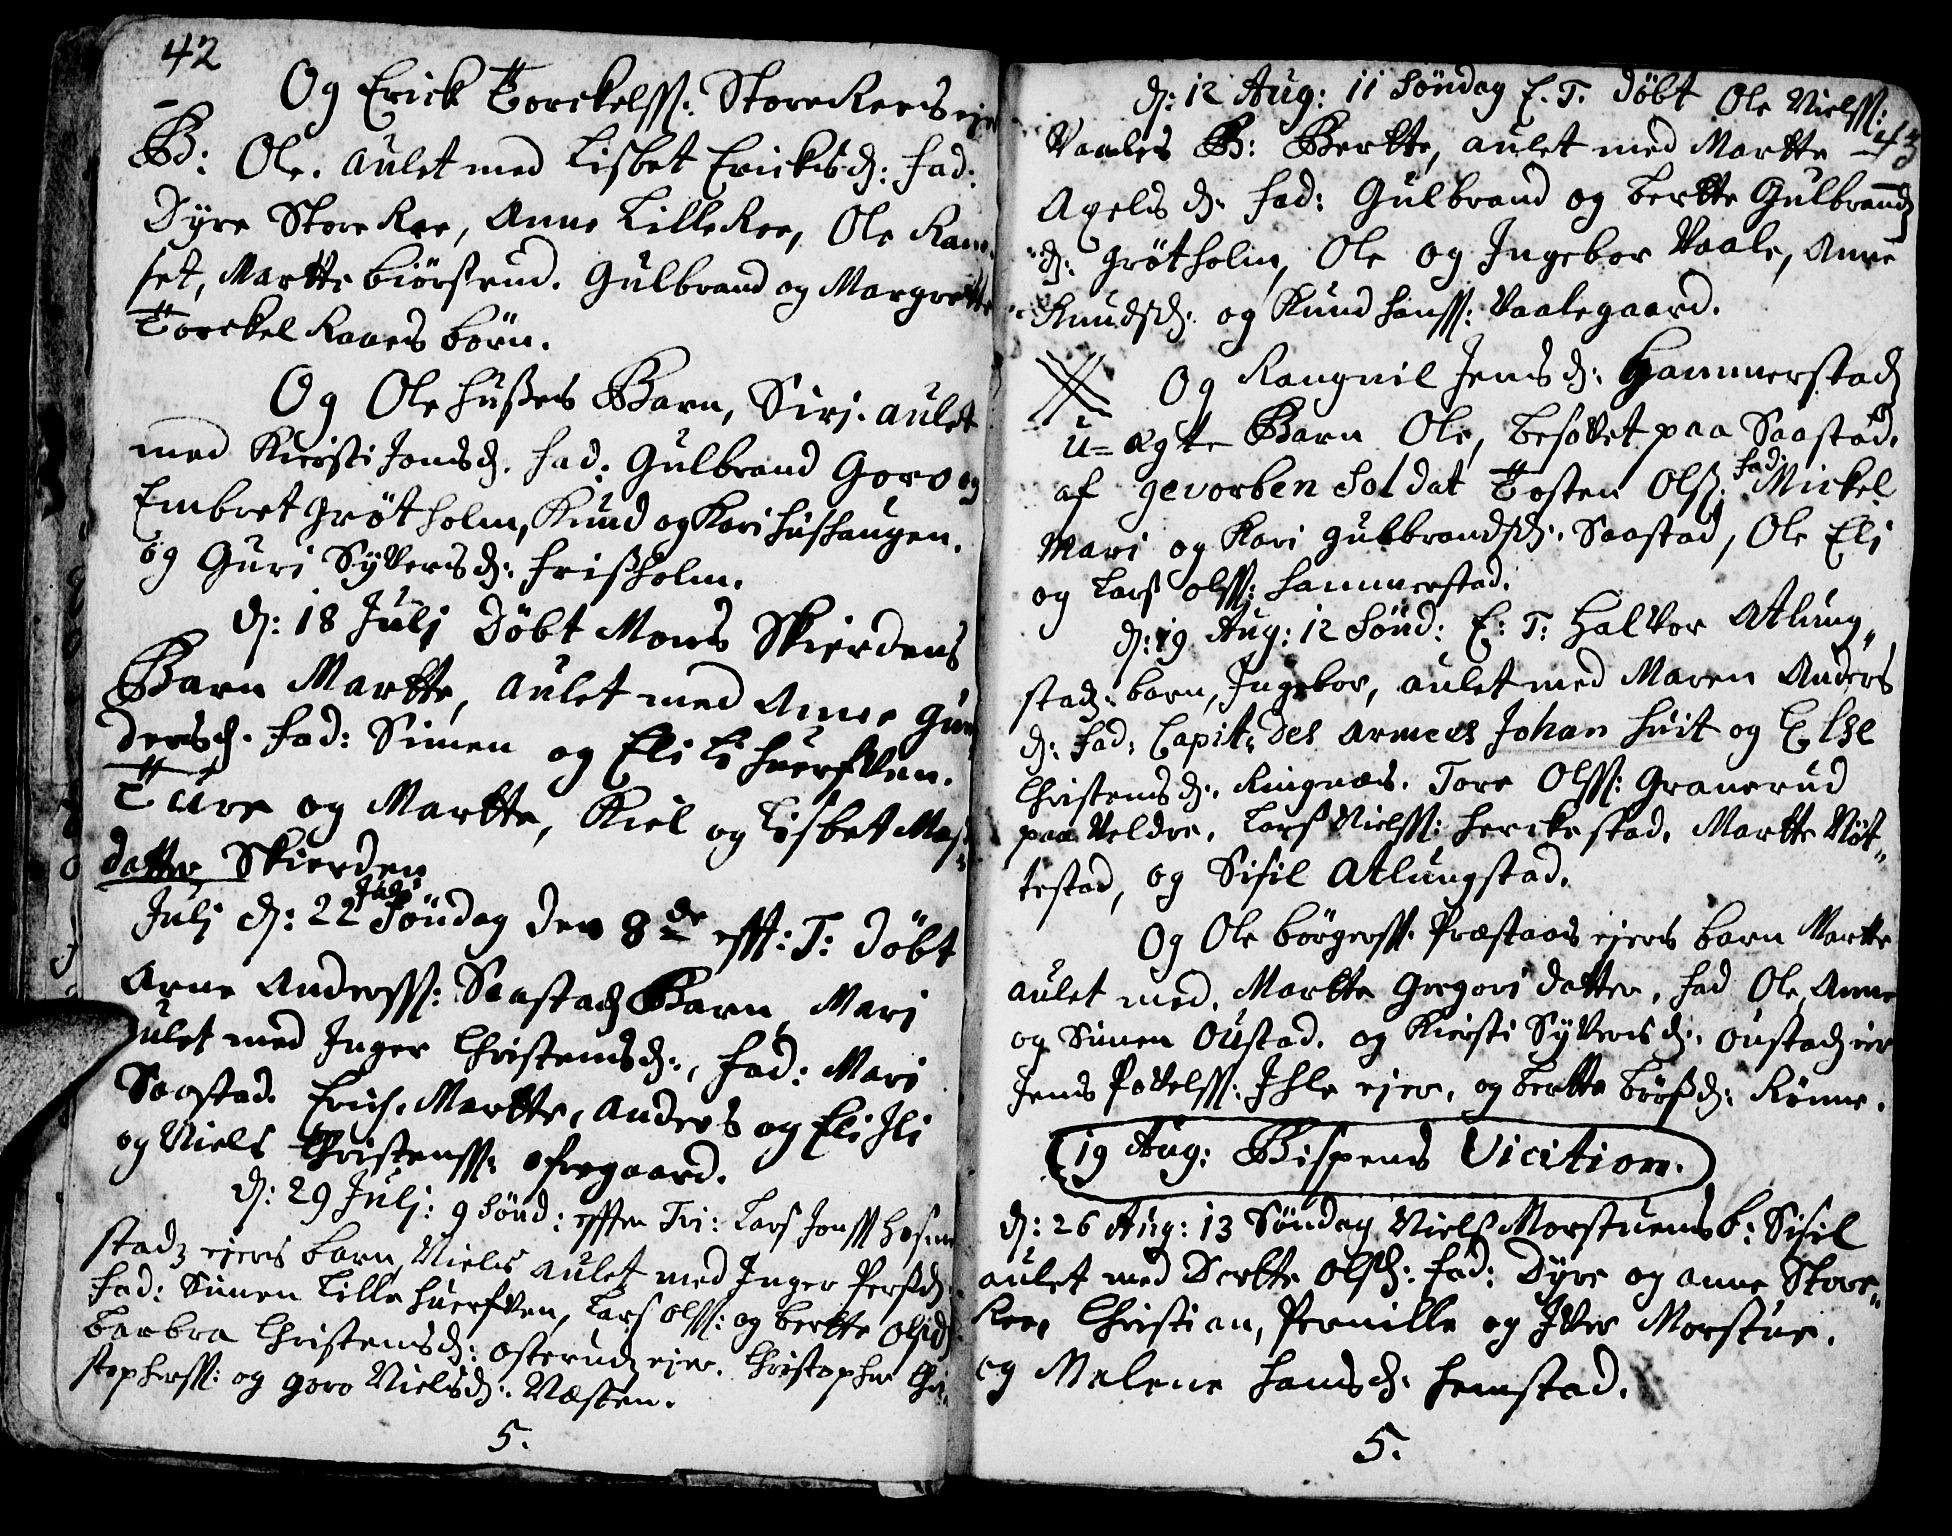 42
Og Erick Torckelss: Store Rees ejers
B: Ole. aulet med Lisbet Ericksd: fad:
Dyre Store Ree, Anne Lille Ree, Ole Ram-
set, Martte biørstrud. Gulbrand og Margrette
Torckel Raaes børn.
Og Ole Hußes Barn, Siri. aulet
med Kiersti Jonsd. fad. Gulbrand Goro og
Embret grøtholm, Knud og Kari Hushaugen.
og Guri Syversd: frißholm.
d: 18 Julj Døbt Mons Skierdens
Barn Martte, aulet med Anne Gun-
dersd. fad: Simen og Eli li huerfven.
Ture og Martte, Kiel og Lisbet Mas-
datter Skierden
Julj d: 22 Søndag den 8de efft: T: Døbt
Arne Anderss: Saastad Barn, Mari
aulet med Inger Christensd:, fad: Mari
Saastad. Erich. Martte, Anders og Eli Ili
og Niels Christenss: ofregaard.
d: 29 Julj: 9 Sønd: efften Tri: Lars Jonss
stadz ejers barn, Niels aulet med Inger Persd.
fad: Simen Lille huerfven, Lars olss: og bertte olsd:
barbra Christensd: osterudz ejer. Christopher Chri-
stopherss: og goro Nielsd: Næsten.
5.
d: 12 Aug: 11 Søndag E. T. døbt Ole Nielss:
43
Vaales B: Bertte, aulet med Martte
Axelsd. fad: Gulbrand og bertte Gulbrandz
d: grøtholm, Ole og Ingebor Vaale, Anne
Knudsd: og Knud hanss: Vaalegaard.
Og Rangnil Jensd: Hammerstadz
u=ægte Barn Ole, besovet paa Saastad.
af gevorben Soldat Tosten Olss: fad: Mickel
Mari og Kari gulbrandsd. Saastad, Ole Eli
og Lars olss: hammerstad.
d: 19 Aug: 12 Sønd: E: T: Halvor Atlung-
stadz barn, Ingebor, aulet med Maren Anders
d: fad: Capit: des armees Johan huit og Else
Christensd. Ringnæs. Tore Olss: Granerud
paa Veldre. Lars Nielss: herckestad. Martte Nøt-
testad, og Sisil Atlungstad.
Og Ole børgerss. Præstaas ejers barn Martte
aulet med. Martte Gregori datter. fad Ole, Anne
og Simen Oustad. og Kiersti Syversd. oustadz ejer
Jens Povelss: Ihle ejer. og bertte børßd: Rønne.
19 Aug: Bispens Vicition.
d: 26 Aug: 13 Søndag Niels Morstuens b: Sisil
aulet med Dortte olsd: fad: Dyre og anne Store-
Ree, Christian, Pernille og Iver Morstue.
og Malene hansd. hemstad.
5.